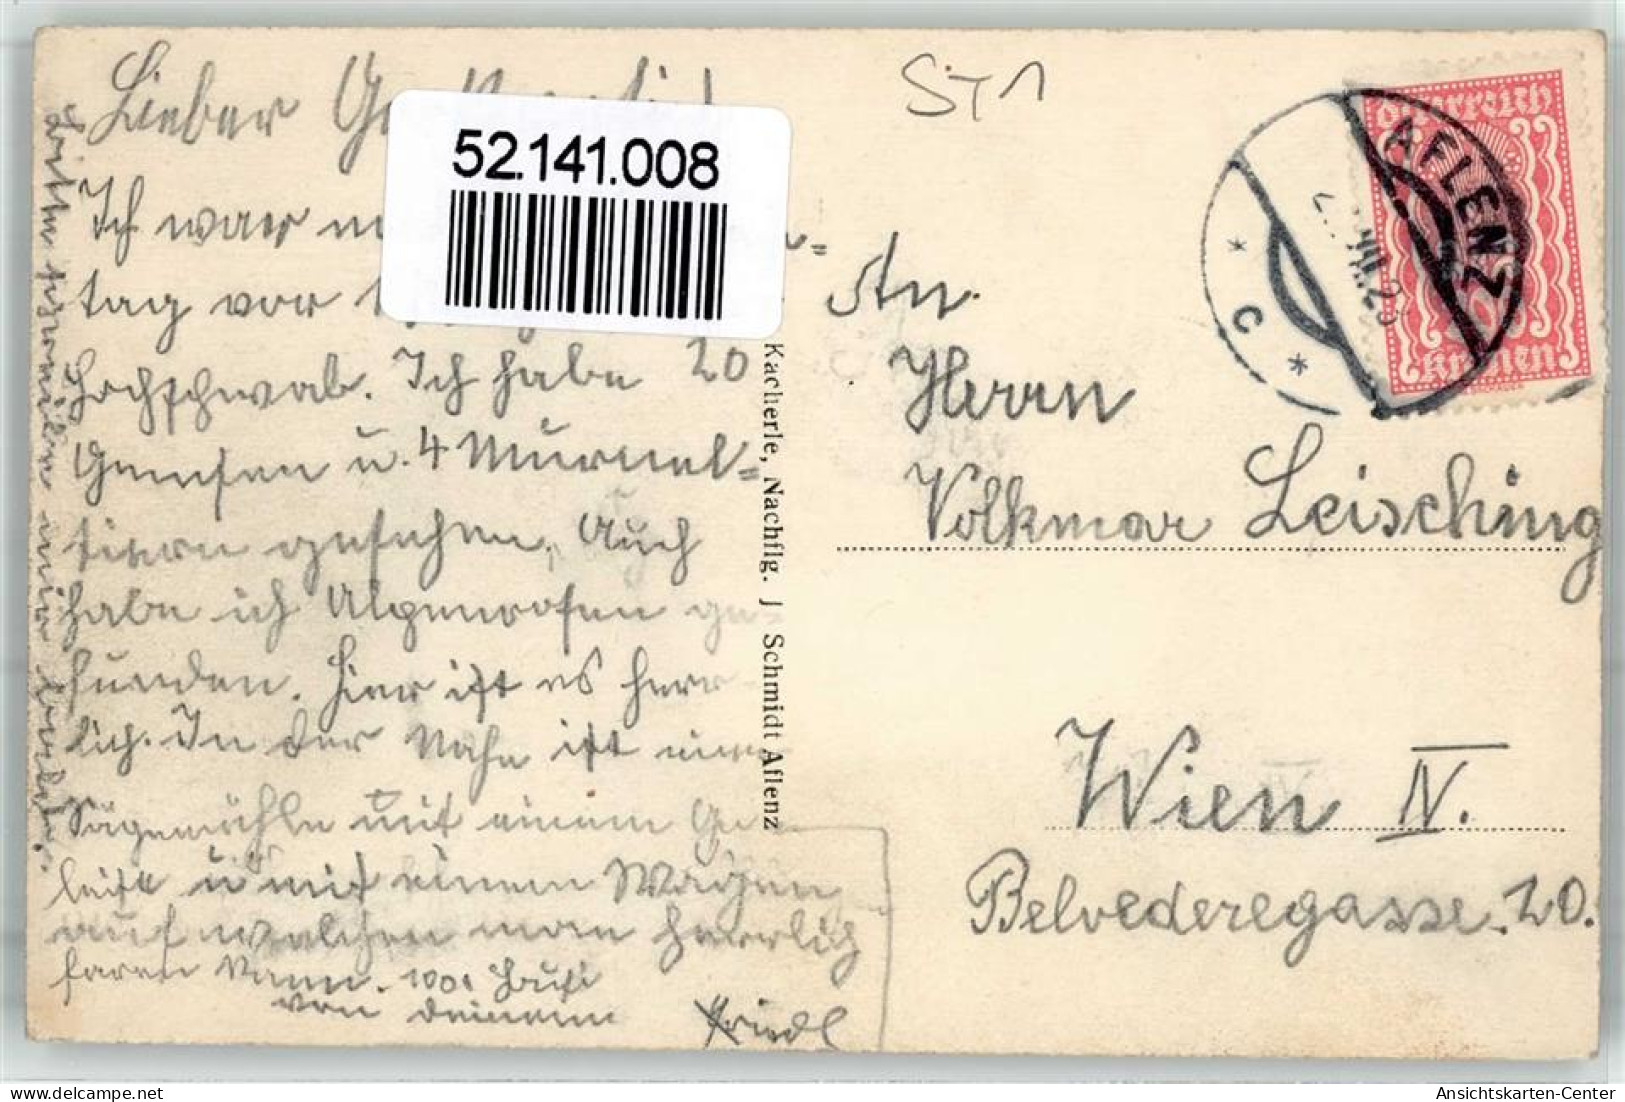 Lieber
52.141.008
Ich war
tag vor
Hochschwab. Ich habe 20
Gemsen u. 4 Murmel=
tieren gesehen. Auch
habe ich Alpenrosen ge-
funden. Hier ist es herr-
lich. In der Nähe ist eine
Sägemühle mit einem Ge-
leise u mit einem Wagen
auf welchen man herrlich
faren kann. 100 Bussi
von deinem Friedl
Bitte
mir
Kacherle, Nachflg. J Schmidt Aflenz
ST1
Österreich
400
Kronen
AFLENZ
* C *
An
Herrn
Volkmar Leisching
Wien IV.
Belvederegasse. 20.
Ansichtskarten-Center